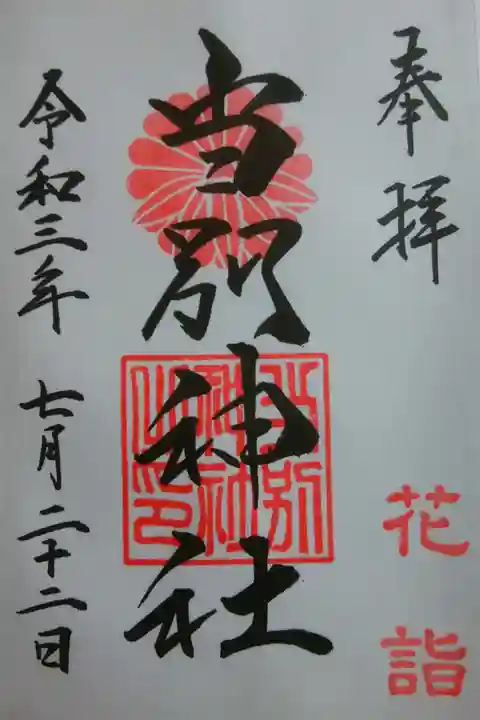 奉拝
花詣
当別神社
当別
神社
之印
令和三年 七月二十二日